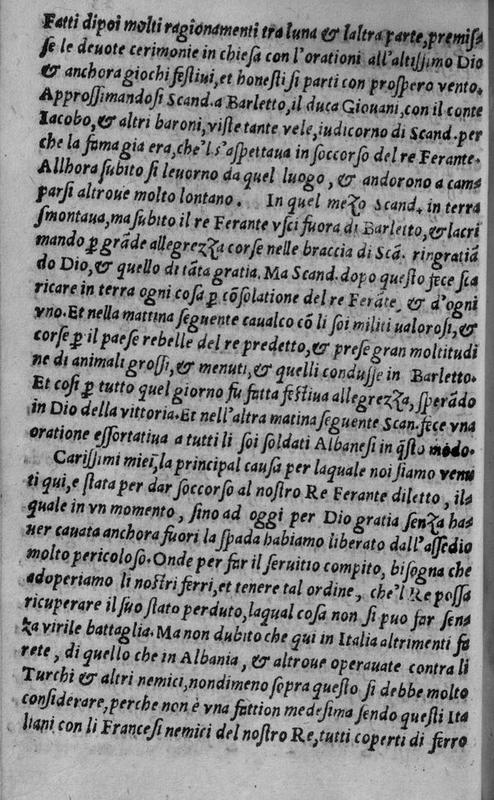 Fatti dipoi molti ragionamenti tra luna & laltra parte, premiſſa
ſe le deuote cerimonie in chieſa con l'orationi all'altiſſimo Dio
& anchora giochi feſtiui, et honeſti ſi parti con proſpero vento.
Approſſimandoſi Scand. a Barletto, il duca Giouani, con il conte
Iacobo, & altri baroni, viſte tante vele, iudicorno di Scand. per
che la fama gia era, che'l s'aſpettaua in ſoccorſo del re Ferante.
Allhora ſubito ſi leuorno da quel luogo, & andorono a cam=
parſi altroue molto lontano. In quel mezo Scand. in terra
ſmontaua, ma ſubito il re Ferante vſci fuora di Barletto, & lacri
mando ꝑ grãde allegrezza corſe nelle braccia di Scã. ringratiã
do Dio, & quello di tãta gratia. Ma Scand. dopo queſto fece ſca
ricare in terra ogni coſa ꝑ cõſolatione del re Ferãte, & d'ogni
vno. Et nella mattina ſeguente caualco cõ li ſoi militi ualoroſi, &
corſe ꝑ il paeſe rebelle del re predetto, & preſe gran moltitudi
ne di animali groſſi, & menuti, & quelli conduſſe in Barletto.
Et coſi ꝑ tutto quel giorno fu fatta feſtiua allegrezza, ſperãdo
in Dio della vittoria. Et nell'altra matina ſeguente Scan. fece vna
oratione eſſortatiua a tutti li ſoi ſoldati Albaneſi in q̃ſto modo.
Cariſſimi miei, la principal cauſa per laquale noi ſiamo venu
ti qui, e ſtata per dar ſoccorſo al noſtro Re Ferante diletto, ila
quale in vn momento, ſino ad oggi per Dio gratia ſenza ha=
uer cauata anchora fuori la ſpada habiamo liberato dall'aſſedio
molto pericoloſo. Onde per far il ſeruitio compito, biſogna che
adoperiamo li noſtri ferri, et tenere tal ordine, che'l Re poſſa
ricuperare il ſuo ſtato perduto, laqual coſa non ſi puo far ſen=
za virile battaglia. Ma non dubito che qui in Italia altrimenti fa
rete, di quello che in Albania, & altroue operauate contra li
Turchi & altri nemici, nondimeno ſopra queſto ſi debbe molto
conſiderare, perche non è vna fattion medeſima ſendo queſti Ita
liani con li Franceſi nemici del noſtro Re, tutti coperti di ferro